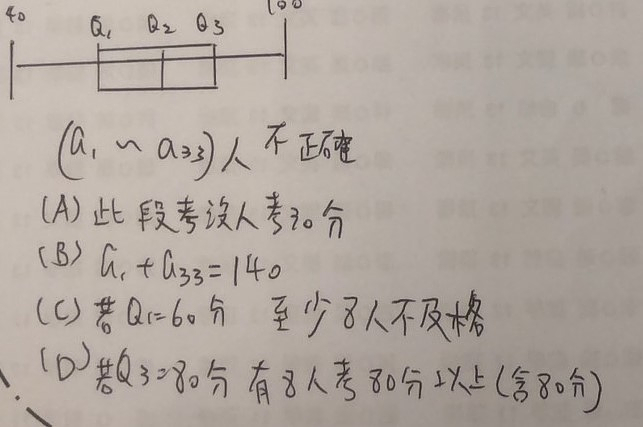 40 100
Q₁ Q₂ Q₃
(a₁ ~ a₃₃)人 不正確
(A) 此段考沒人考30分
(B) a₁ + a₃₃ = 140
(C) 若Q₁=60分 至少8人不及格
(D) 若Q₃=80分 有8人考80分以上(含80分)